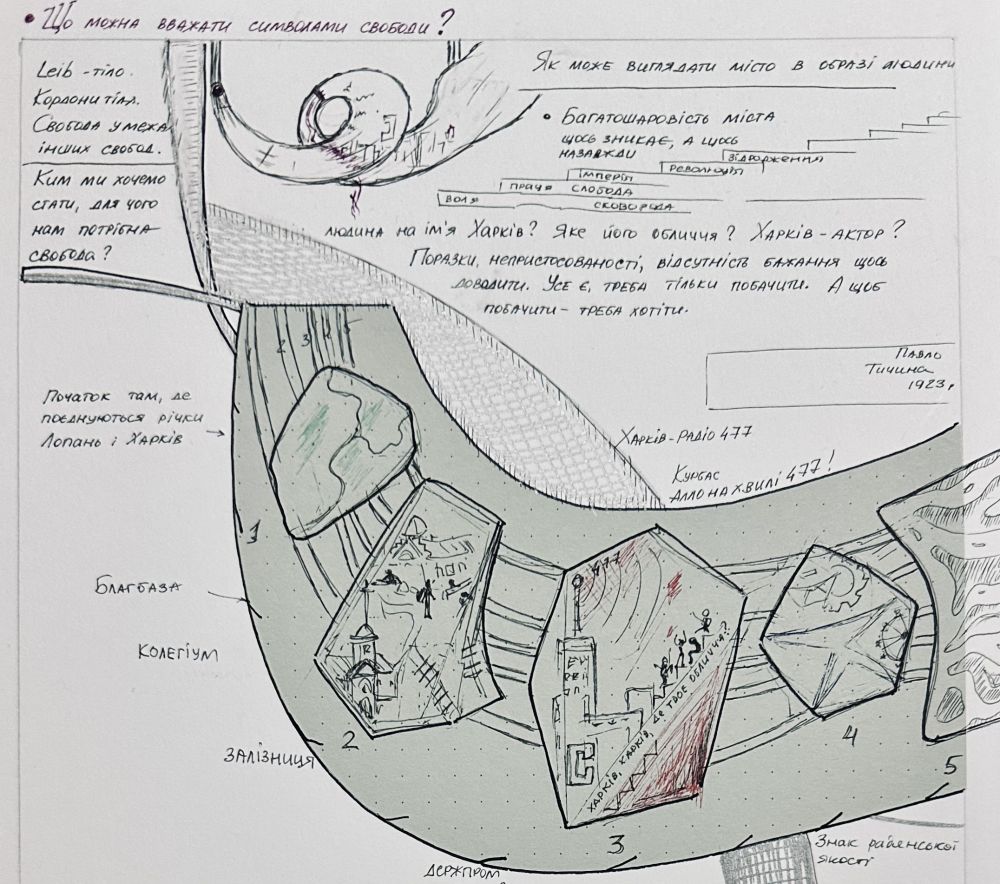 • Що можна вважати символами свободи?
Leib - тіло.
Кордони тіла.
Свобода у межах
інших свобод.
Ким ми хочемо
стати, для чого
нам потрібна
свобода?
Як може виглядати місто в образі людини
• Багатошаровість міста
щось зникає, а щось
назавжди
Відродження
Революція
Імперія
Праця Слобода
Воля Сковорода
Людина на ім'я Харків? Яке його обличчя? Харків - актор?
Поразки, непристосованості, відсутність бажання щось
доводити. Усе є, треба тільки побачити. А щоб
побачити - треба хотіти.
Павло
Тичина
1923р
Харків-радіо 477
Курбас
Алло на хвилі 477!
2 3 4 5
Початок там, де
поєднуються річки
Лопань і Харків
1
Благбаза
Колегіум
Залізниця
2
477
Харків, Харків, де твоє обличчя?
3
4
5
Держпром
Знак радянської
якості